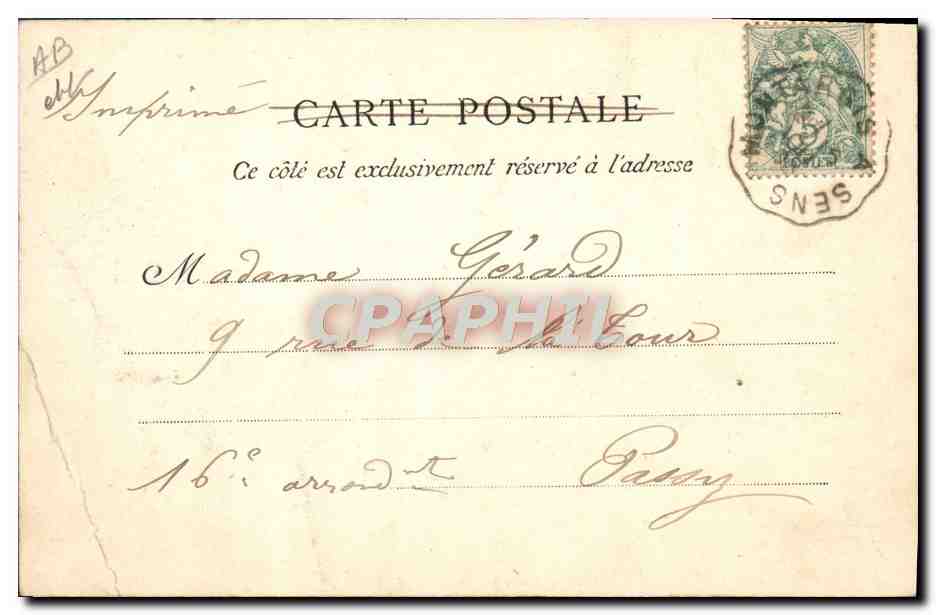 AB
Imprimé
CARTE POSTALE
Ce côté est exclusivement réservé à l'adresse
SENS
Madame Gérard
CPAPHIL
9 rue de la Tour
16e arrondt Passy